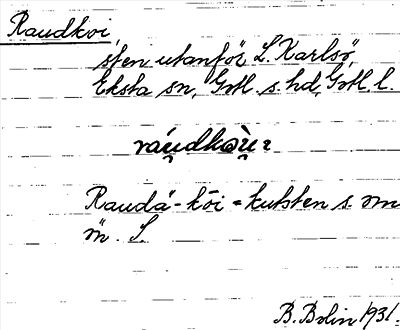 Raudkoi,
sten utanför L. Karlsö,
Eksta sn, Gotl. s. hd, Gotl. l.
Raudä-kōi = kutsten s. om
m. S.
B. Bolin 1931.